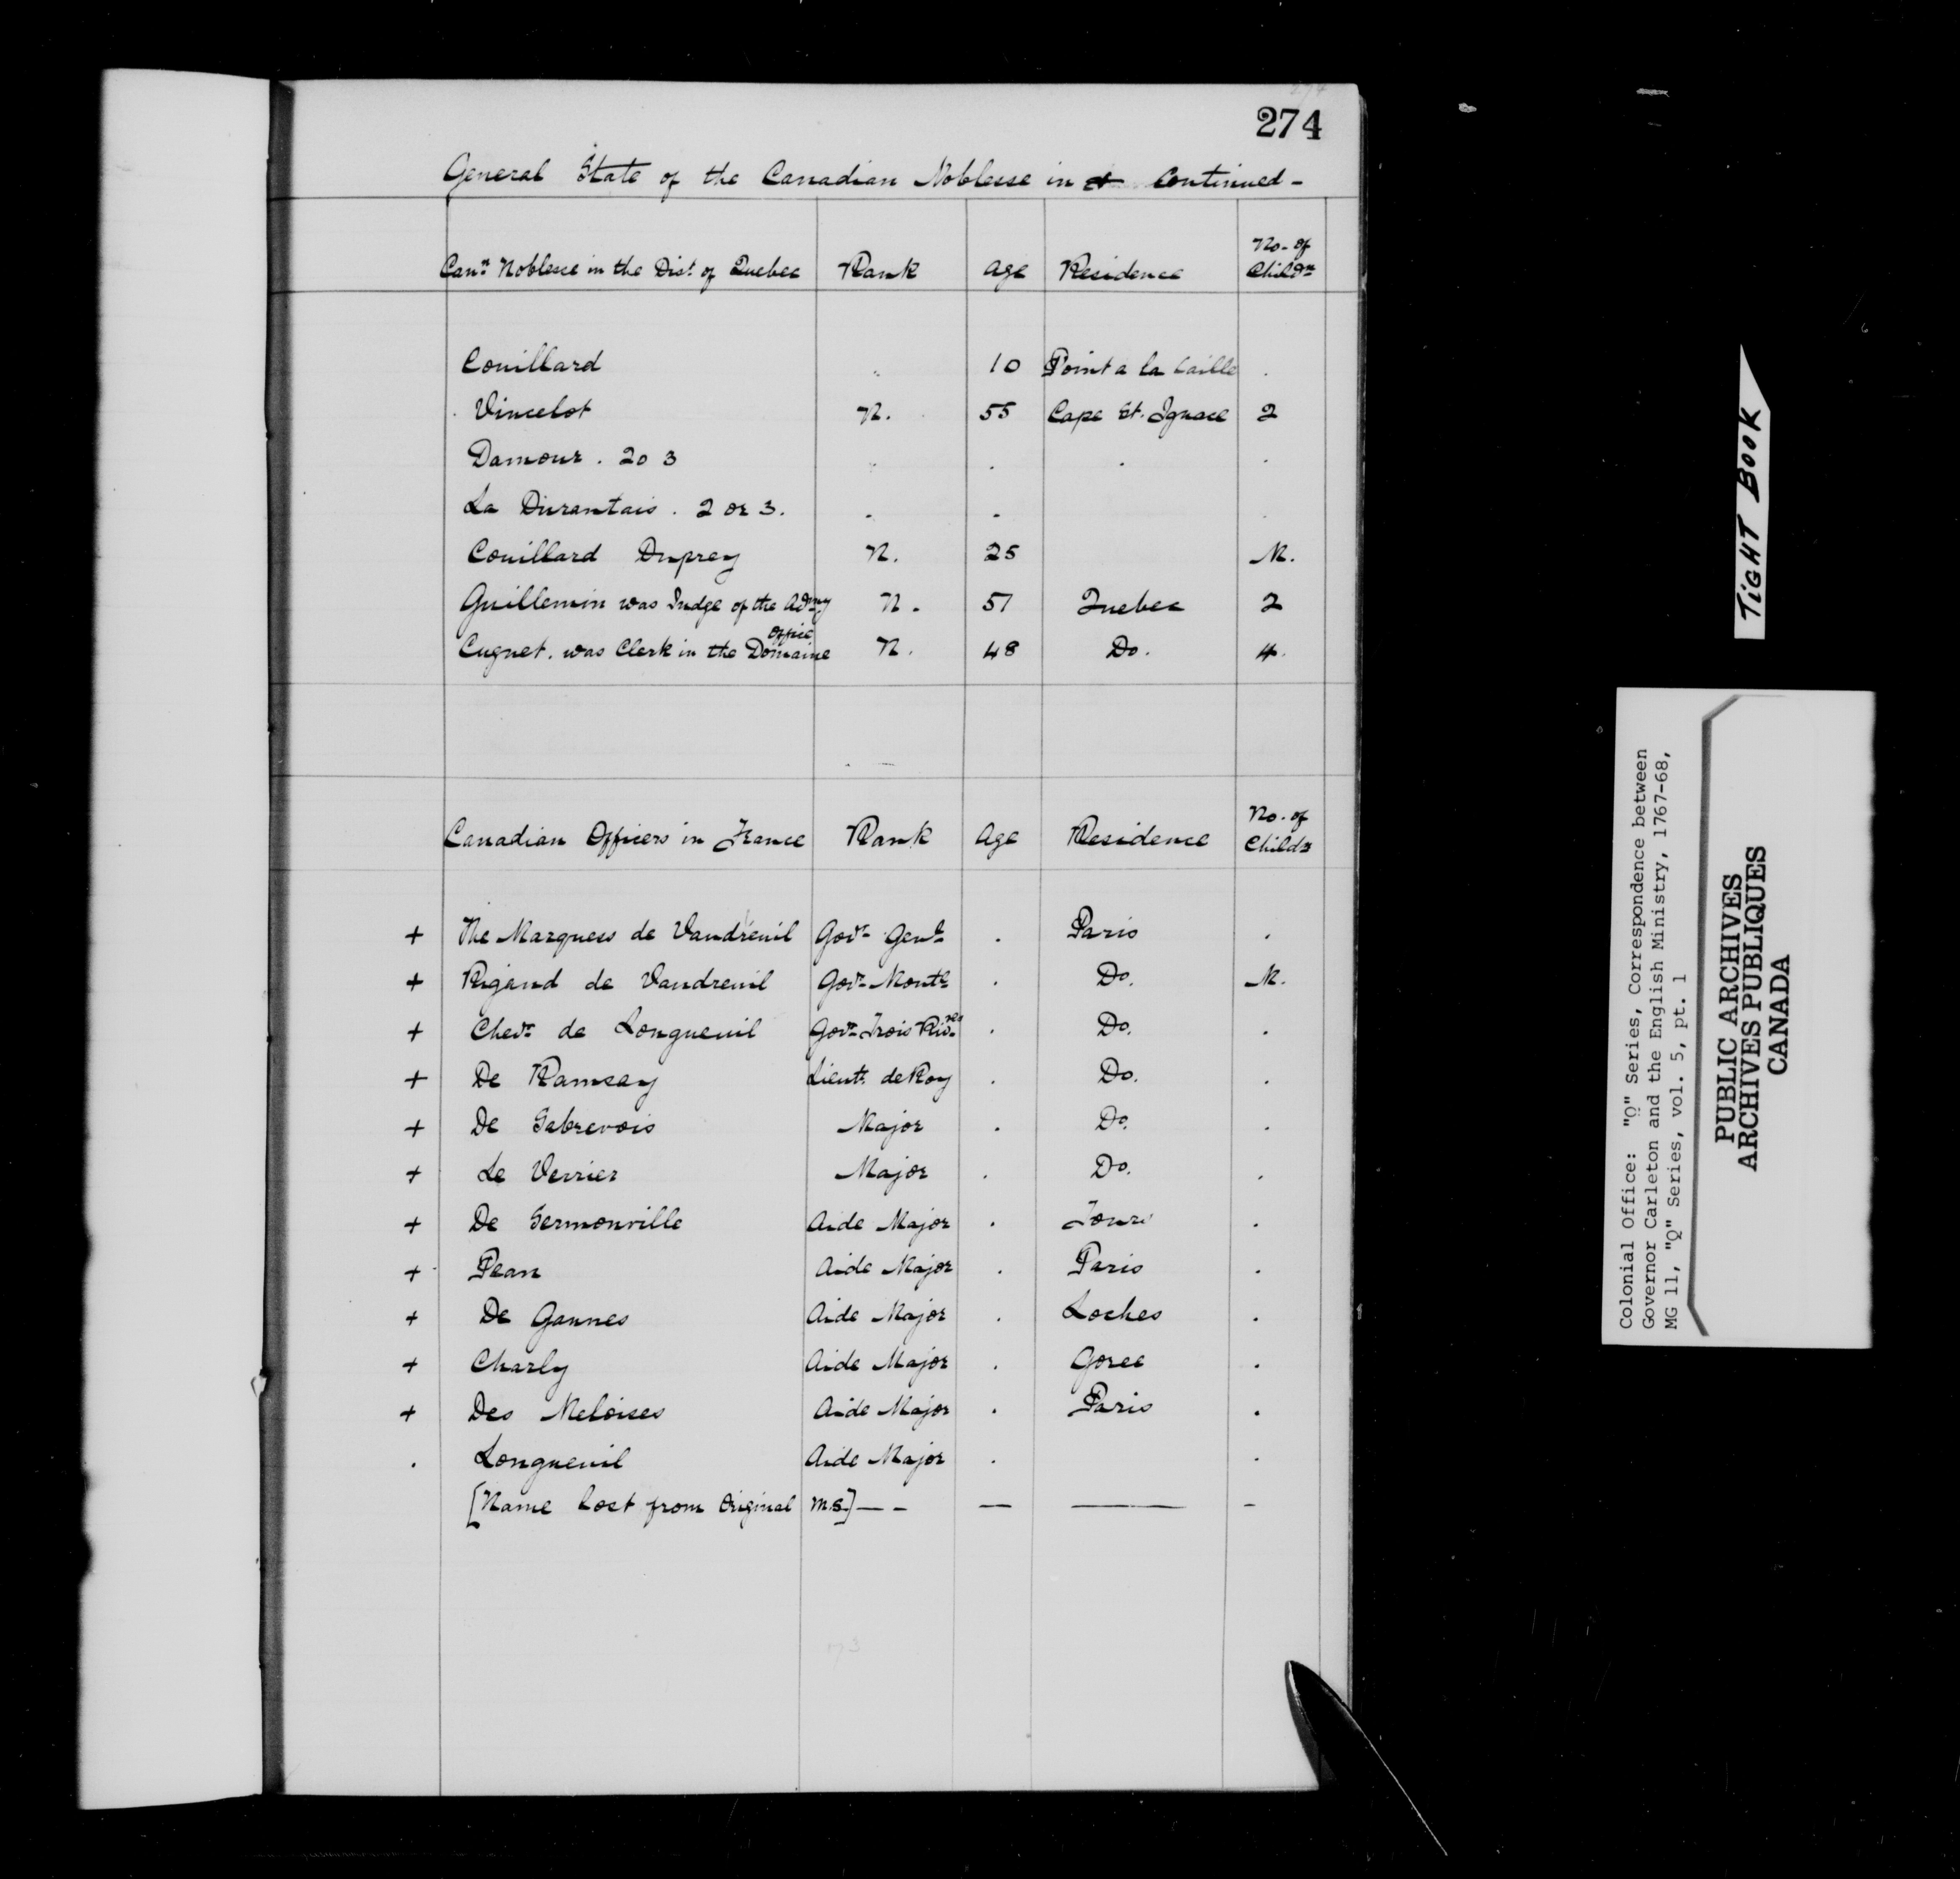 274
General State of the Canadian Noblesse in Continued -
Cann. Noblesse in the Dist. of Quebec Rank Age Residence No. of Childn
Couillard " 10 Point a la Caille .
Vincelot N. 55 Cape St. Ignace 2
Damour . 2 o 3 . . . .
La Durantais . 2 or 3. . . .
Couillard Duprey N. 25 N.
Guillemin was Judge of the Admy N. 57 Quebec 2
Cugnet. was Clerk in the Domaine Office N. 48 Do. 4.
Canadian Officers in France Rank Age Residence No. of Childn
+ The Marquess de Vaudreuil Govr. Genl. . Paris .
+ Rigaud de Vaudreuil Govr. Montl. . Do. N.
+ Chevr. de Longueuil Govr. Trois Rivres . Do. .
+ De Ramsay Lieut. de Roy . Do. .
+ De Sabrevois Major . Do. .
+ Le Verrier Major . Do. .
+ De Sermonville Aide Major . Tours .
+ Pean Aide Major . Paris .
+ De Gannes Aide Major . Loches .
+ Charly Aide Major . Goree .
+ Des Meloises Aide Major . Paris .
. Longueuil Aide Major . .
[Name lost from Original M.S.] — - — — -
TIGHT BOOK
Colonial Office: "Q" Series, Correspondence between
Governor Carleton and the English Ministry, 1767-68,
MG 11, "Q" Series, vol. 5, pt. 1
PUBLIC ARCHIVES
ARCHIVES PUBLIQUES
CANADA